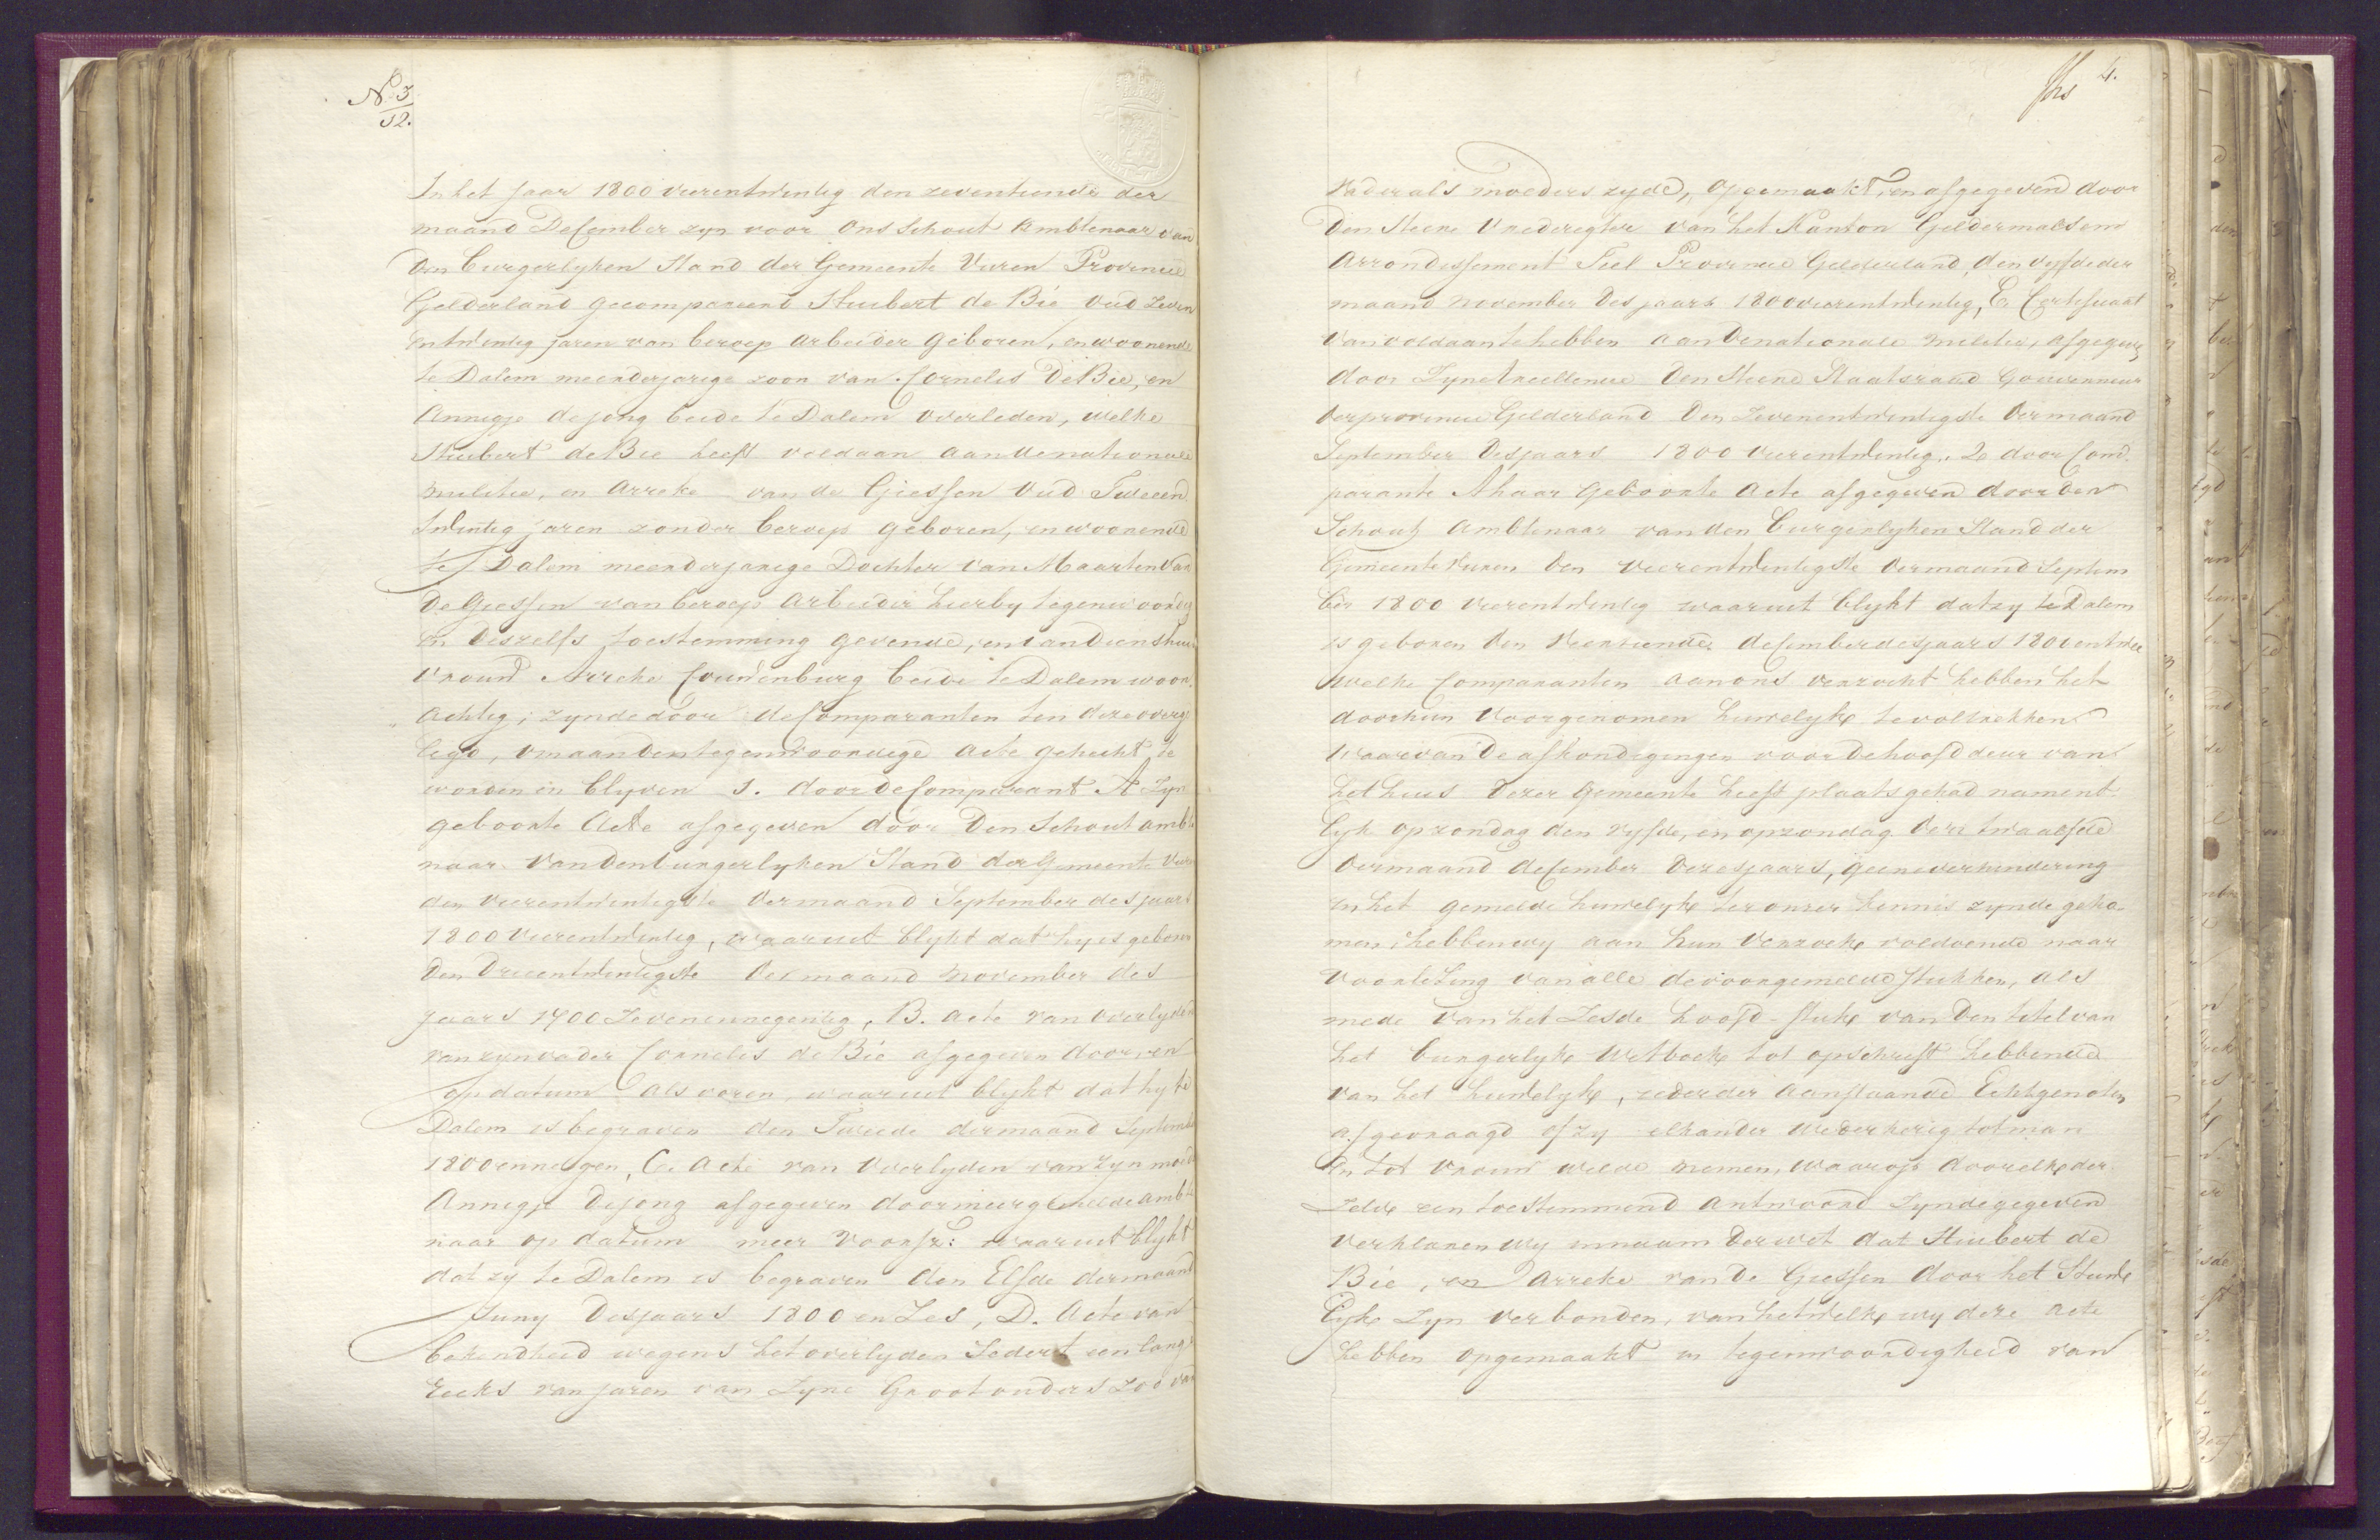 No 3
12.
In het Jaar 1800 vierentwintig den zeventiende der
maand December zyn voor ons Schout Ambtenaar van
den burgerlyken Stand der Gemeente Vuren Provincie
Gelderland gecompareerd Huibert de Bie oud Zeven
entwintig jaren van beroep arbeider geboren, en woonende
te Dalem meerderjarige zoon van Cornelis De Bie, en
Annigje de jong beide te Dalem overleden, welke
Huibert de Bie heeft voldaan aan de nationale
militie, en Arreke van de Giessen Oud Tweeen
twintig jaren zonder beroep geboren, en woonende
te Dalem meerderjarige Dochter van Maarten van
De Giessen van beroep Arbeider hierby tegenwoordig
en deszelfs toestemming gevende, en van diens huis
vrouw Arreke Couwenburg beide te Dalem woon
achtig; zynde door de Comparanten ten deze overge
legd, om aan den tegenwoordige acte gehecht te
worden en blyven 1. door de Comparant A Zyn
geboorte Acte afgegeven door Den Schout ambte
naar van den burgerlyken Stand der Gemeente Vuren
den vierentwintigste der maand September des jaars
1800 Vierentwintig, waaruit blykt dat hy is geboren
Den Drieentwintigste der maand November des
jaars 1700 Zevenennegentig, B. acte van overlyden
van zyn vader Cornelis de Bie afgegeven door en
op datum als voren, waaruit blykt dat hy te
Dalem is begraven den Tweede der maand September
1800 en negen, C. Acte van Overlyden van zyn moeder
Annigje De jong afgegeven door meergemelde ambte
naar op datum meer voorsz: waaruit blykt
dat zy te Dalem is begraven den Elfde der maand
Juny des jaars 1800 en Zes, D. Acte van
bekendheid wegens het overlyden Sedert een lange
reeks van jaren van Zyne Grootouders zoo van
4.
vader als moeders zyde, opgemaakt, en afgegeven door
Den Heere Vrederegter van het Kanton Geldermalsem
Arrondissement Tiel Provincie Gelderland, den vyfde der
maand november des jaars 1800 vierentwintig, E Certificaat
van voldaan te hebben aan de nationale militie, afgegeven
door Zyne Excellencie Den Heere Staatsraad Gouverneur
der provincie Gelderland Den Zevenentwintigste der maand
September des jaars 1800 vierentwintig. 2e door Com
parante A haar geboorte Acte afgegeven door den
Schout Ambtenaar van den burgerlyken Stand der
Gemeente Vuren Den vierentwintigste der maand Septem
ber 1800 vierentwintig waaruit blykt dat zy te Dalem
is geboren den veertiende december des jaars 1800 en twee
welke Comparanten aan ons verzocht hebben het
door hun voorgenomen huwelyk te voltrekken
waarvan de afkondigingen voor de hoofd deur van
het huis dezer Gemeente heeft plaats gehad nament
lyk op zondag den vyfde, en op zondag den twaalfde
der maand december dezes jaars, geene verhindering
in het gemelde huwelyk ter onzer kennis zynde geko
men hebben wy aan hun verzoek voldoende naar
voorlezing van alle de voorgemelde stukken, als
mede van het Zesde hoofd-stuk van Den titel van
het burgerlyk wetboek tot opschrift hebbende
van het huwelyk, ieder der aanstaande Echtgenoten
afgevraagd of zy elkander wederkerig tot man
en tot vrouw wilde nemen, waarop door elke der
zelve een toestemmend antwoord zynde gegeven
verklaren wy in naam der wet dat Huibert de
Bie, en Arreke van de Giessen door het Huwe
lyk Zyn verbonden, van hetwelke wy deze acte
hebben opgemaakt in tegenwoordigheid van